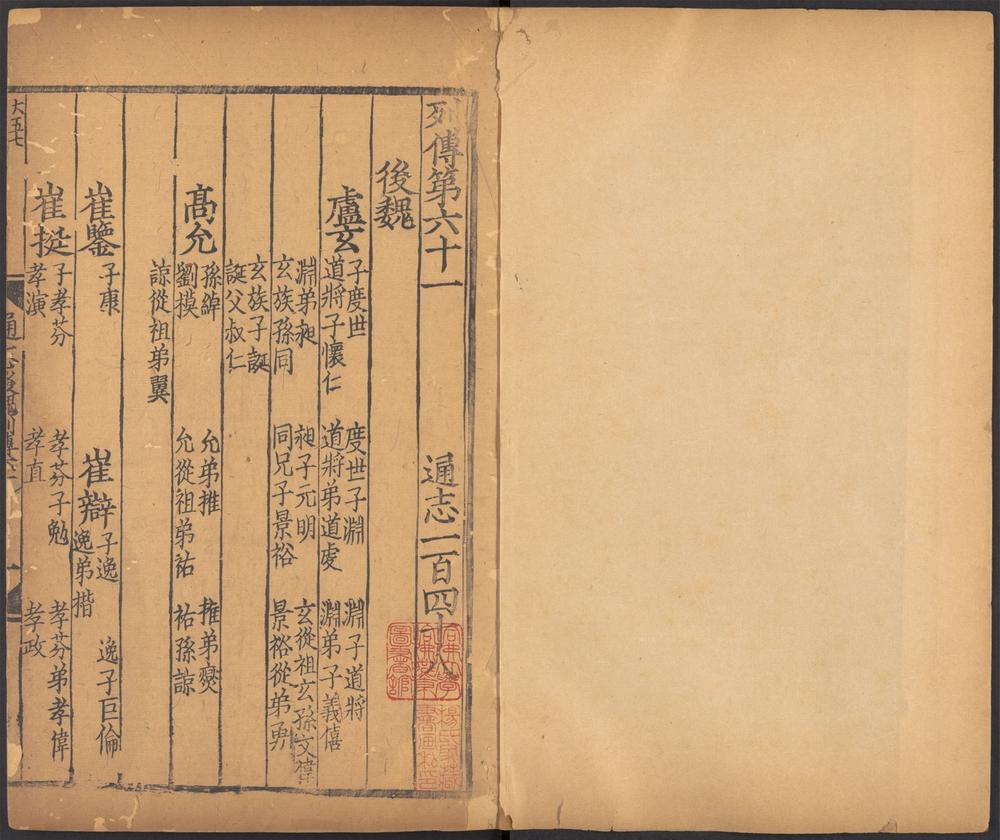 列傳第六十一 通志一百四十八
後魏
盧玄 子度世 度世子淵 淵子道將
道將子懷仁 道將弟道虔 淵弟子義僖
淵弟昶 昶子元明 玄從祖玄孫文偉
玄族孫同 同兄子景裕 景裕從弟勇
玄族子誕
誕父叔仁
高允 孫綽 允弟推 推弟燮
劉摸 允從祖弟祐 祐孫諒
諒從祖弟翼
崔鑒 子康 崔辯 子逸 逸子巨倫
逸弟揩
崔挺 子孝芬 孝芬子勉 孝芬弟孝偉
孝演 孝直 孝政
大五七